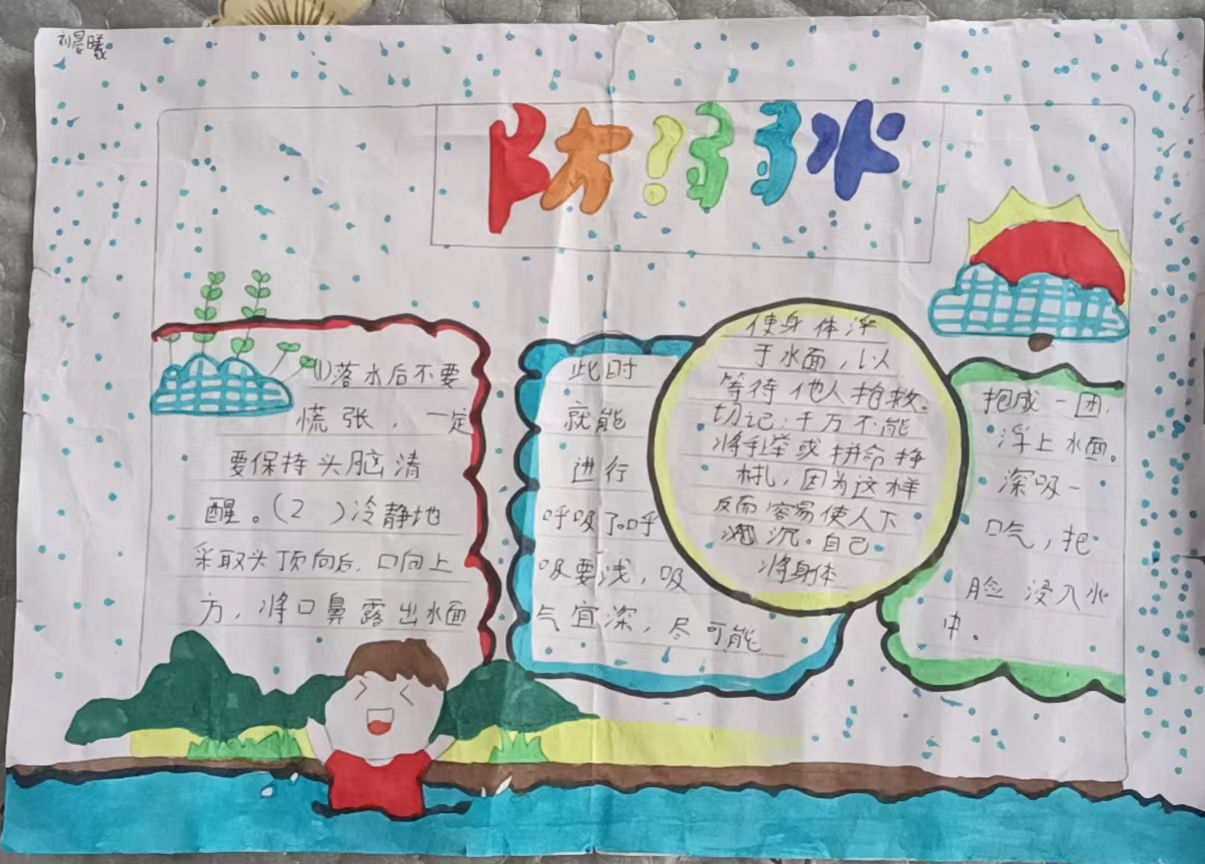 刘晨曦
防溺水
(1)落水后不要
慌张，一定
要保持头脑清
醒。(2 )冷静地
采取头顶向后，口向上
方，将口鼻露出水面
此时
就能
进行
呼吸了。呼
吸要浅，吸
气宜深，尽可能
使身体浮
于水面，以
等待他人抢救。
切记：千万不能
将手举或拼命挣
扎，因为这样
反而容易使人下
沉。自己
将身体
抱成一团，
浮上水面。
深吸一
口气，把
脸浸入水
中。